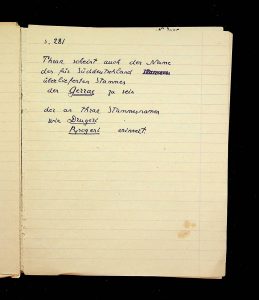 s. 281
Thrac scheint auch der Name
des für Süddeutschland
überlieferten Stammes
der Gerrae zu sein
der an Thrac Stammesnamen
wie Drugeri
Pyrogeri erinnert.